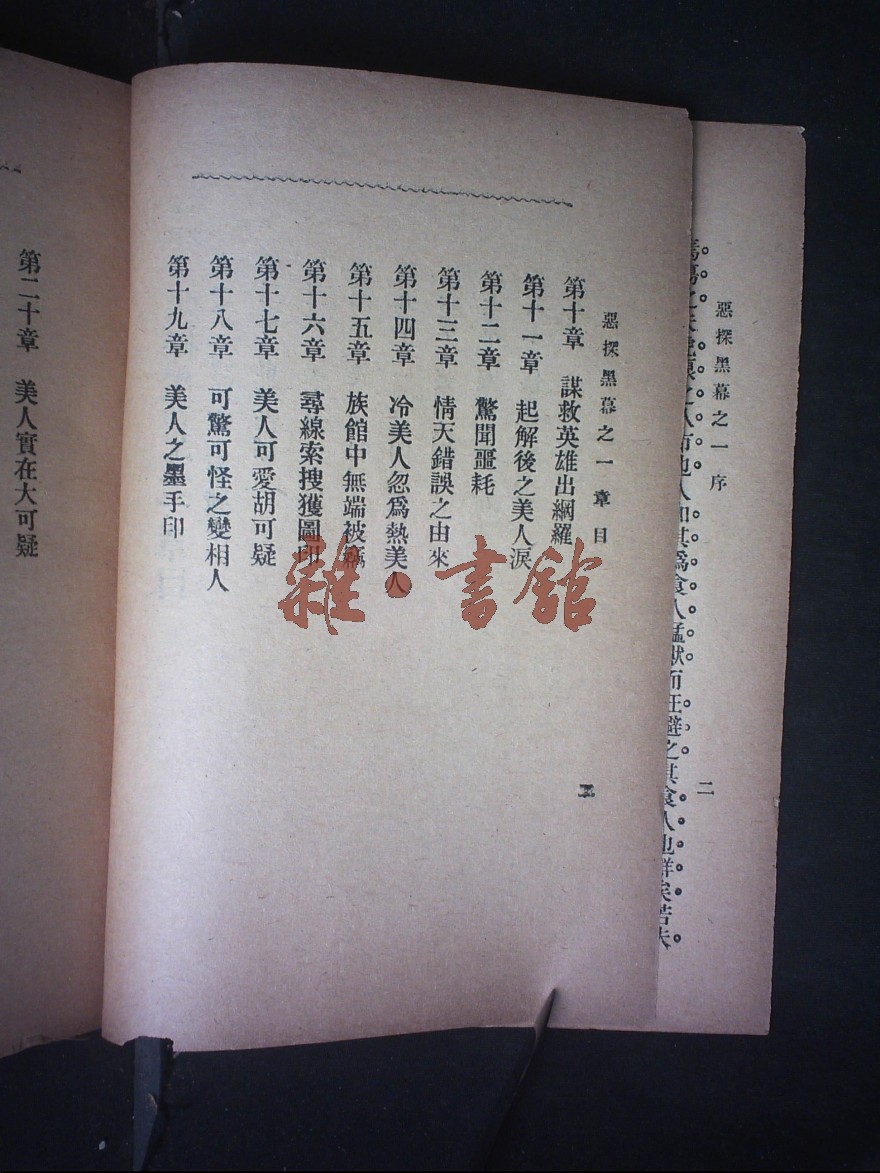 惡探黑幕之一 序
二
惡探黑幕之一 章目
第十章 謀救英雄出網羅
第十一章 起解後之美人淚
第十二章 驚聞噩耗
第十三章 情天錯誤之由來
第十四章 冷美人忽爲熱美人
第十五章 族館中無端被竊
第十六章 尋線索搜獲圖印
第十七章 美人可愛胡可疑
第十八章 可驚可怪之變相人
第十九章 美人之墨手印
第二十章 美人實在大可疑
雜·書館